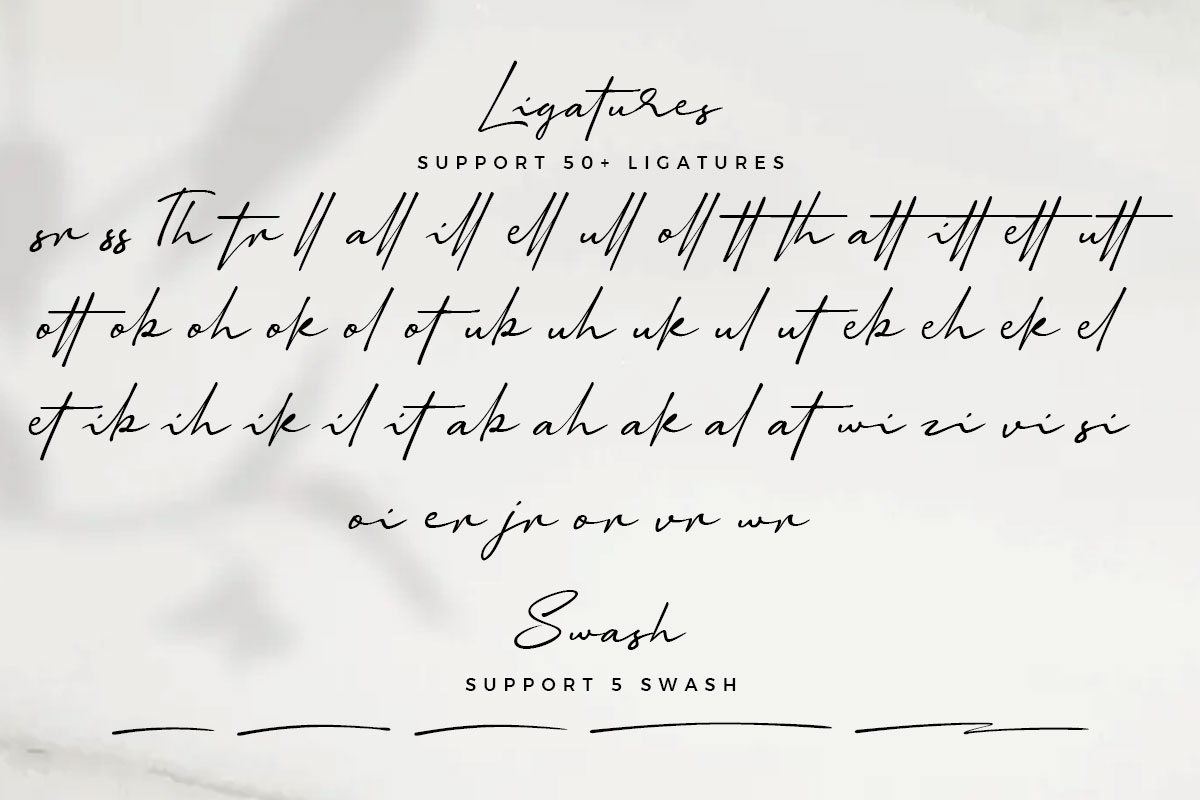 Ligatures
SUPPORT 50+ LIGATURES
sr ss Th tr ll all ill ell ull oll tt th att itt ett utt
ott ob oh ok ol ot ub uh uk ul ut eb eh ek el
et ib ih ik il it ab ah ak al at wi zi vi si
oi er jr or vr wr
Swash
SUPPORT 5 SWASH